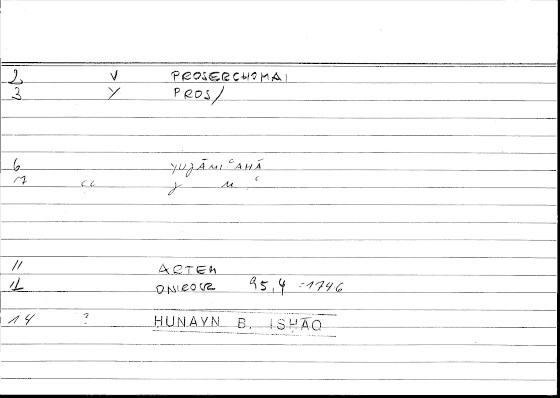 2 V PROSERCHOMAI
3 Y PROS/
6 YUǦĀMIʿAHĀ
7 cc ǧ m ʿ
11 ARTEM
12 ONIROCR 95,4 = 1746
14 ? HUNAYN B. ISHĀQ